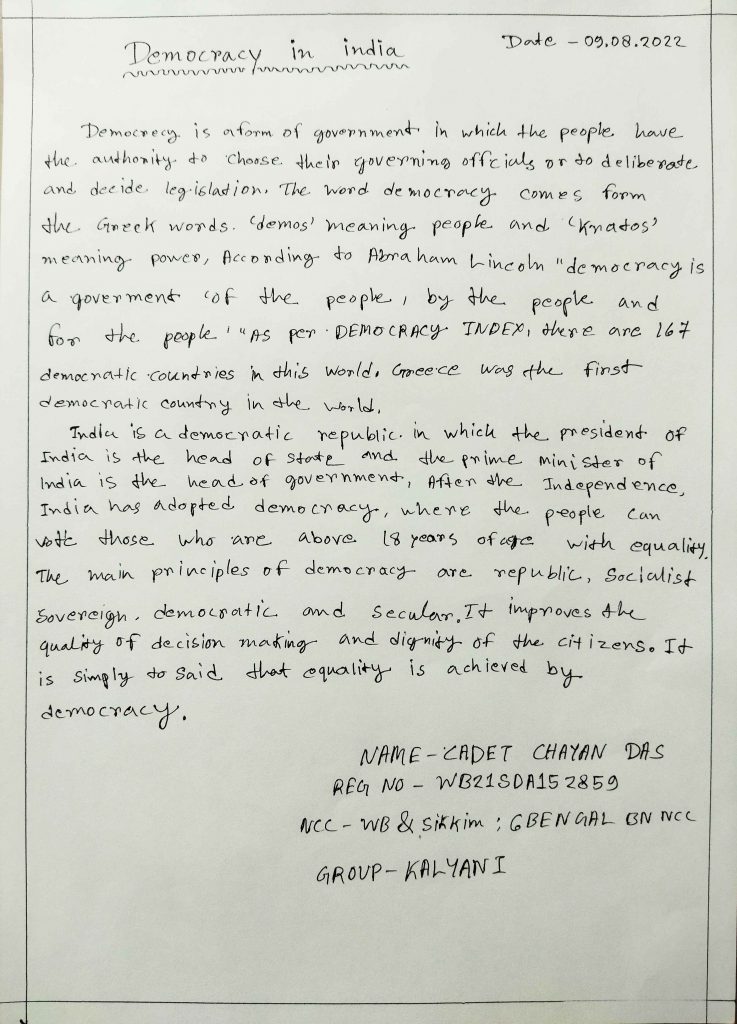 Democracy in india
Date - 09.08.2022
Democrecy is a form of government in which the people have
the authority to choose their governing officials or to deliberate
and decide legislation. The word democracy comes form
the Greek words. 'demos' meaning people and 'Kratos'
meaning power, According to Abraham Lincoln "democracy is
a goverment 'of the people, by the people and
for the people'" AS per DEMOCRACY INDEX, there are 167
democratic countries in this world. Greece was the first
democratic country in the world.
India is a democratic republic in which the president of
India is the head of state and the prime minister of
India is the head of government, After the Independence,
India has adopted democracy, where the people can
vote those who are above 18 years of age with equality.
The main principles of democracy are republic, Socialist
Sovereign, democratic and secular. It improves the
quality of decision making and dignity of the citizens. It
is simply to said that equality is achieved by
democracy.
NAME - CADET CHAYAN DAS
REG NO - WB21SDA152859
NCC - WB & Sikkim ; 6BENGAL BN NCC
GROUP - KALYANI